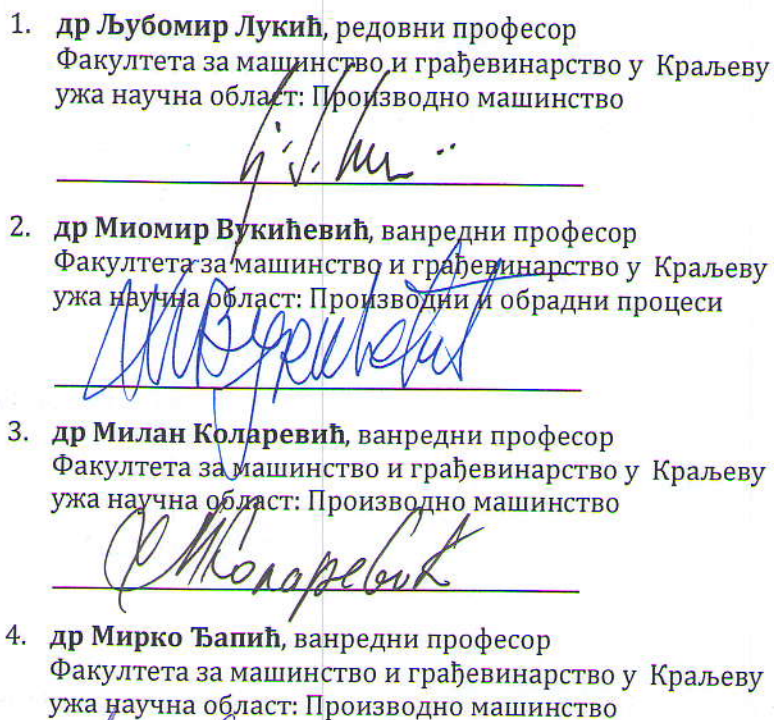 1. др Љубомир Лукић, редовни професор
Факултета за машинство и грађевинарство у Краљеву
ужа научна област: Производно машинство
2. др Миомир Вукићевић, ванредни професор
Факултета за машинство и грађевинарство у Краљеву
ужа научна област: Производни и обрадни процеси
3. др Милан Коларевић, ванредни професор
Факултета за машинство и грађевинарство у Краљеву
ужа научна област: Производно машинство
4. др Мирко Ђапић, ванредни професор
Факултета за машинство и грађевинарство у Краљеву
ужа научна област: Производно машинство